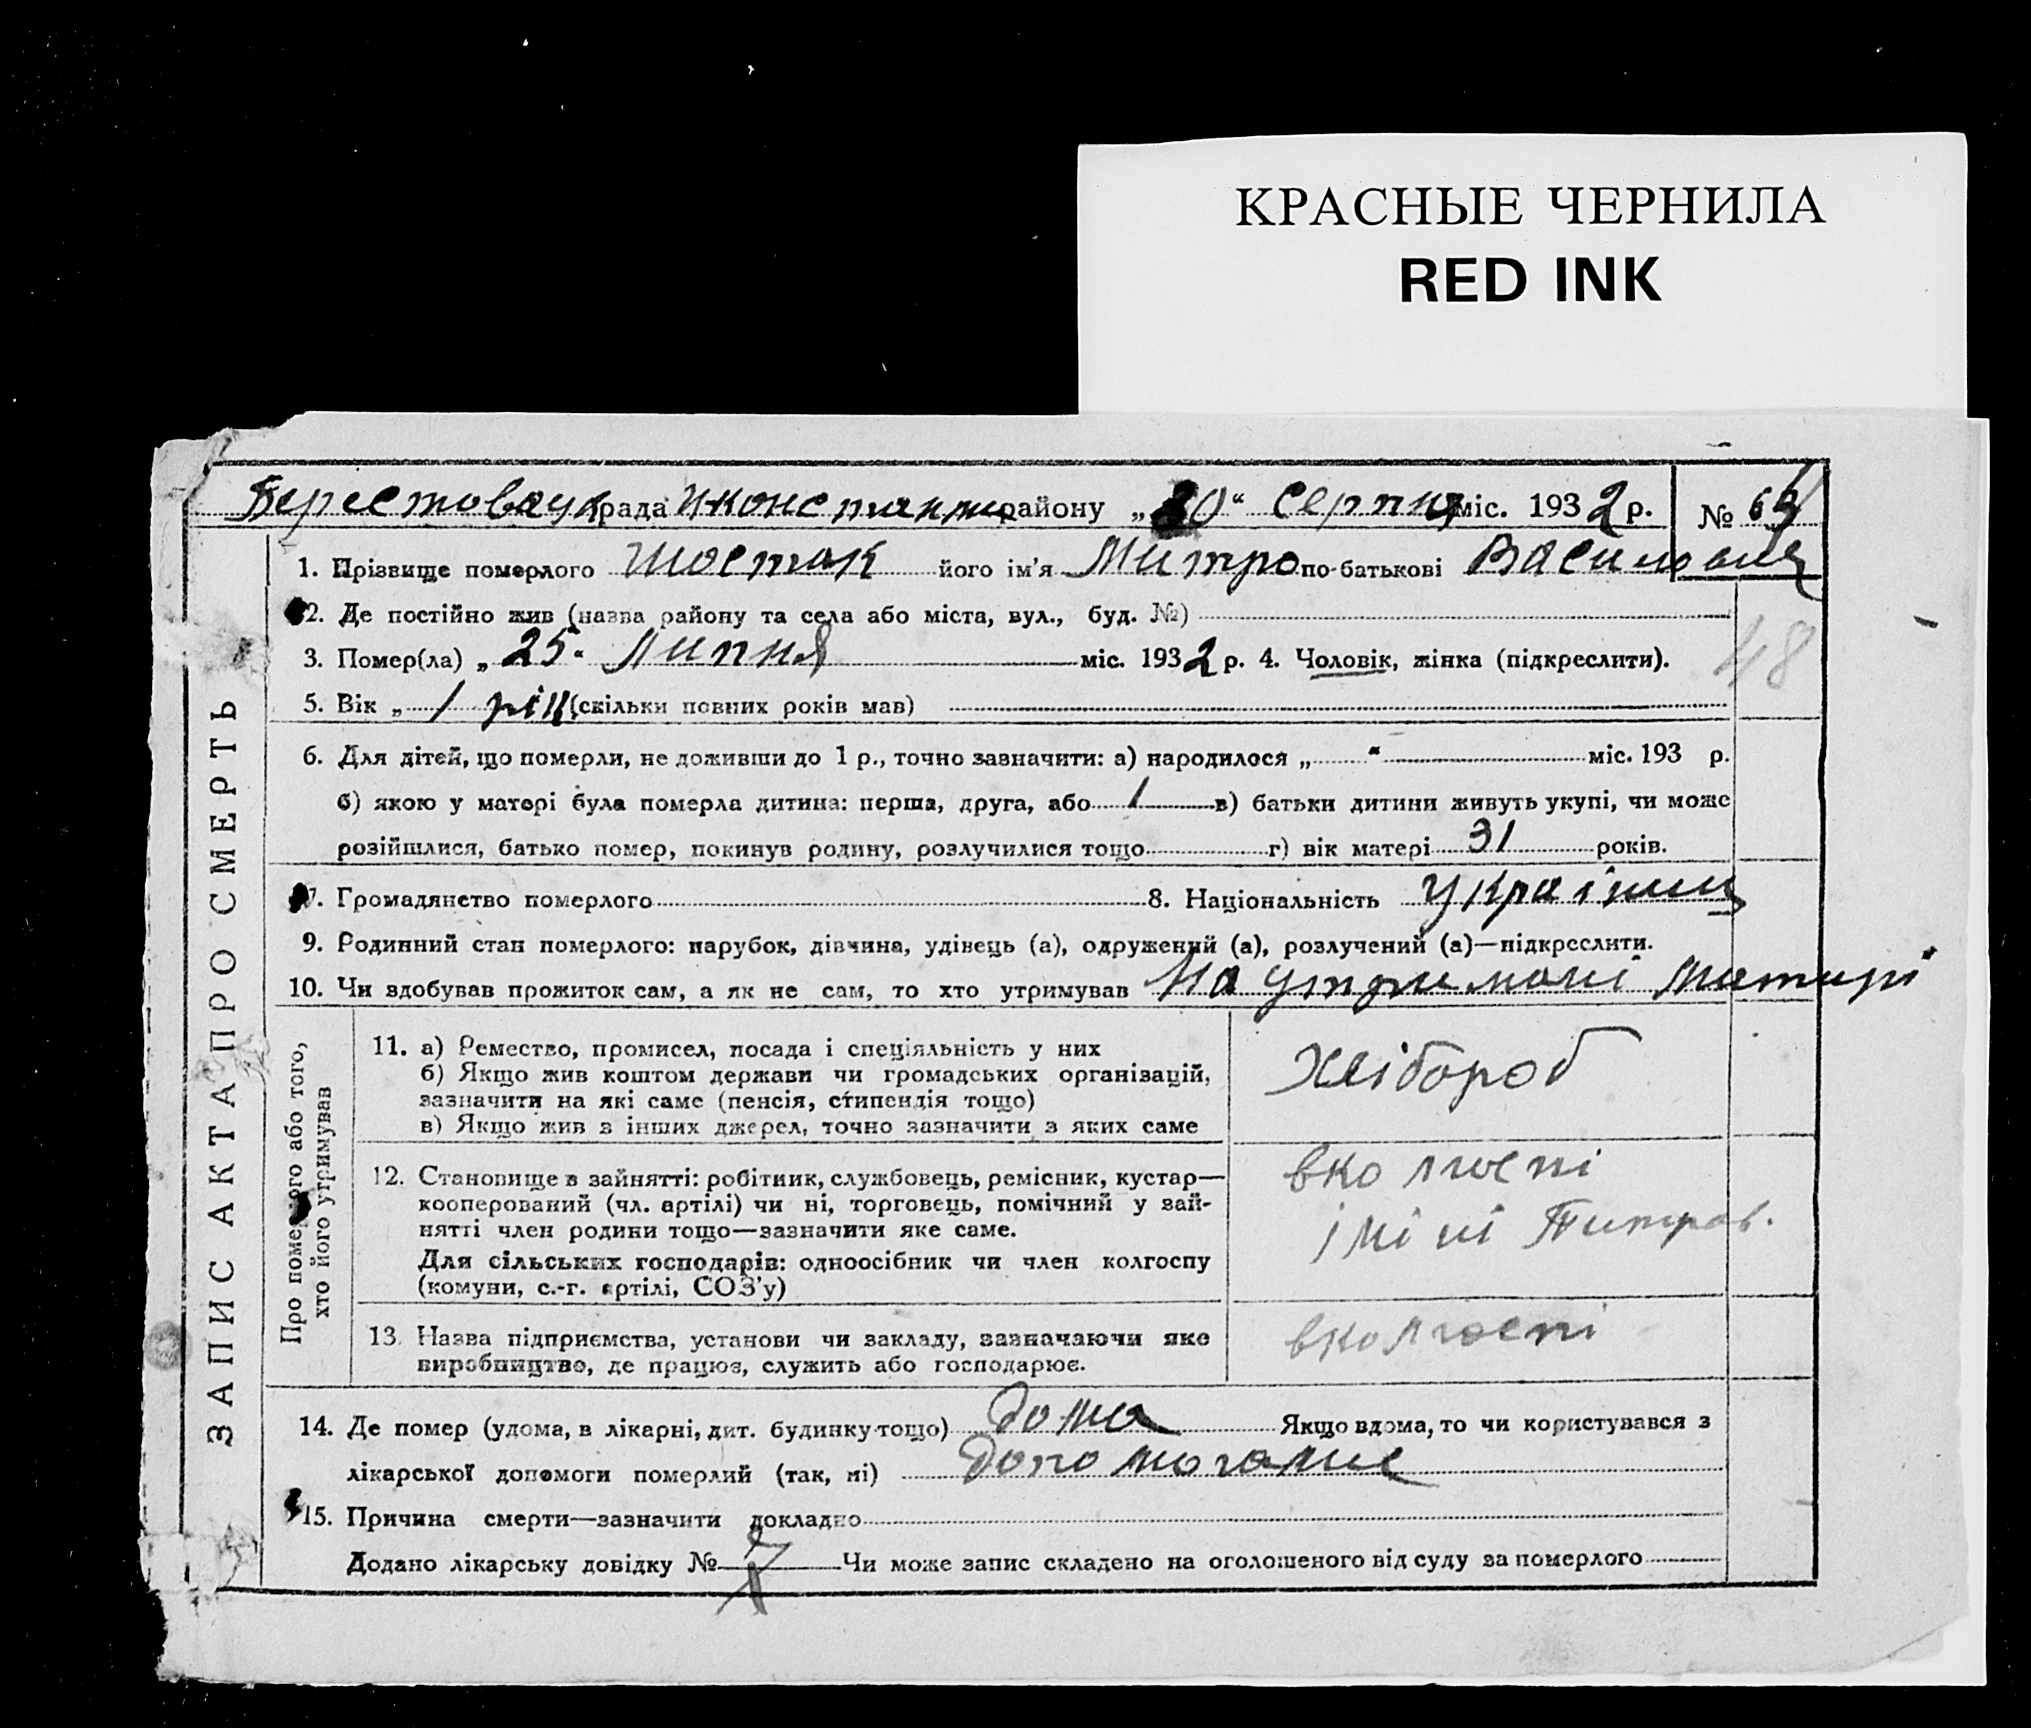 КРАСНЫЕ ЧЕРНИЛА
RED INK
рада району „30“ Серпня міс. 1932 р. №
1. Прізвище померлого Шостак його ім’я Митро по-батькові
2. Де постійно жив (назва району та села або міста, вул., буд. №)
3. Помер(ла) „25“ Липня міс. 1932 р. 4. Чоловік, жінка (підкреслити).
48
5. Вік „1 рік (скільки повних років мав)
6. Для дітей, що померли, не доживши до 1 р., точно зазначити: а) народилося „ “ міс. 193 р.
б) якою у матері була померла дитина: перша, друга, або 1 в) батьки дитини живуть укупі, чи може
розійшлися, батько помер, покинув родину, розлучилися тощо г) вік матері 31 років.
7. Громадянство померлого 8. Національність Українец
9. Родинний стан померлого: парубок, дівчина, удівець (а), одружений (а), розлучений (а)—підкреслити.
10. Чи здобував прожиток сам, а як не сам, то хто утримував На утримані матирі
ЗАПИС АКТА ПРО СМЕРТЬ
Про померлого або того,
хто його утримував
11. а) Ремество, промисел, посада і спеціяльність у них
б) Якщо жив коштом держави чи громадських організацій,
зазначити на які саме (пенсія, стипендія тощо)
в) Якщо жив з інших джерел, точно зазначити з яких саме
Хлібороб
12. Становище в зайнятті: робітник, службовець, ремісник, кустар—
кооперований (чл. артілі) чи ні, торговець, помічний у зай-
нятті член родини тощо—зазначити яке саме.
Для сільських господарів: одноосібник чи член колгоспу
(комуни, с.-г. артілі, СОЗ’у)
вколгоспі
іміні Питров.
13. Назва підприємства, установи чи закладу, зазначаючи яке
виробництво, де працює, служить або господарює.
вколгоспі
14. Де помер (удома, в лікарні, дит. будинку тощо) дома Якщо вдома, то чи користувався з
лікарської допомоги померлий (так, ні)
15. Причина смерти—зазначити докладно
Додано лікарську довідку № Чи може запис складено на оголошеного від суду за померлого